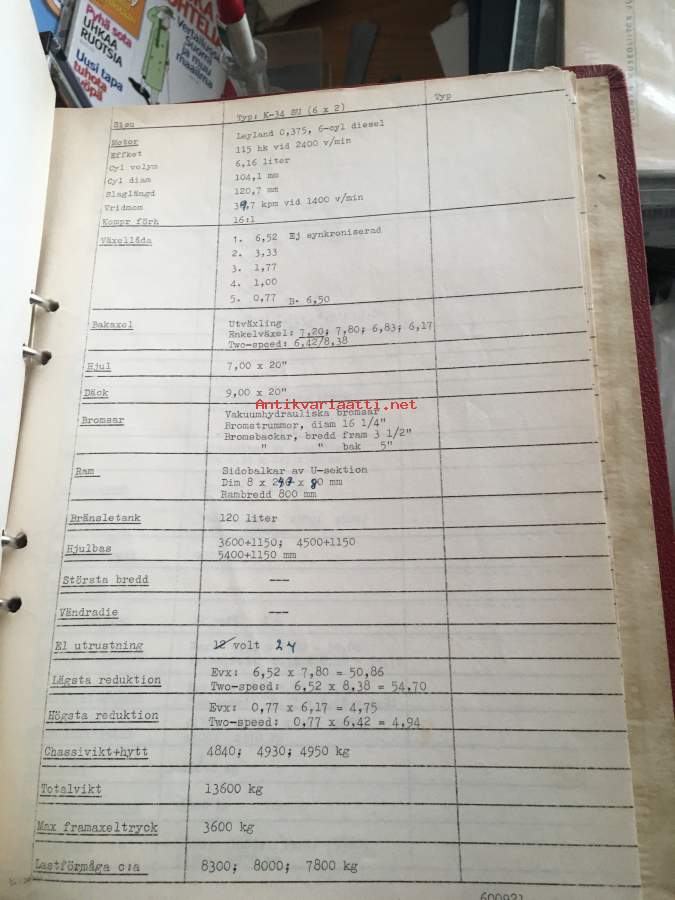 Pyhä sota
UHKAA
RUOTSIA
Uusi tapa
tuhota
Sisu Typ: K-34 SU (6 x 2) Typ
Motor Leyland 0,375, 6-cyl diesel
Effket 115 hk vid 2400 v/min
Cyl volym 6,16 liter
Cyl diam 104,1 mm
Slaglängd 120,7 mm
Vridmom 39,7 kpm vid 1400 v/min
Kompr förh 16:1
Växellåda 1. 6,52 Ej synkroniserad
2. 3,33
3. 1,77
4. 1,00
5. 0,77 B. 6,50
Bakaxel Utväxling
Enkelväxel: 7,20; 7,80; 6,83; 6,17
Two-speed: 6,42/8,38
Hjul 7,00 x 20"
Däck 9,00 x 20"
Antikvariaatti.net
Bromsar Vakuumhydrauliska bromsar
Bromstrummor, diam 16 1/4"
Bromsbackar, bredd fram 3 1/2"
" " bak 5"
Ram Sidobalkar av U-sektion
Dim 8 x x 80 mm
Rambredd 800 mm
Bränsletank 120 liter
Hjulbas 3600+1150; 4500+1150
5400+1150 mm
Största bredd ---
Vändradie ---
El utrustning 12 volt 24
Lägsta reduktion Evx: 6,52 x 7,80 = 50,86
Two-speed: 6,52 x 8,38 = 54,70
Högsta reduktion Evx: 0,77 x 6,17 = 4,75
Two-speed: 0,77 x 6,42 = 4,94
Chassivikt+hytt 4840; 4930; 4950 kg
Totalvikt 13600 kg
Max framaxeltryck 3600 kg
Lastförmåga c:a 8300; 8000; 7800 kg
600921